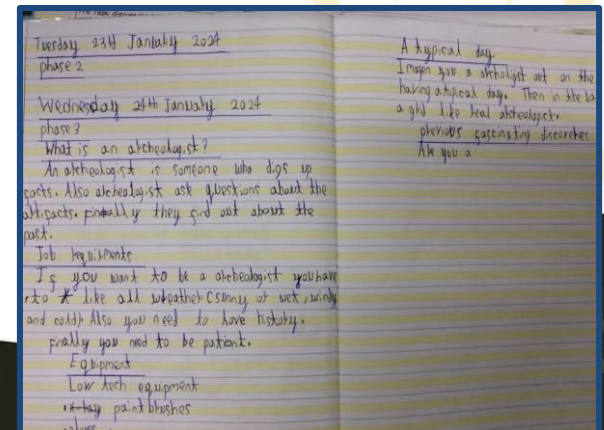 Tuesday 23rd January 2024
phase 2
Wednesday 24th January 2024
phase 3
What is an archeologist?
An archeologist is someone who digs up
facts. Also archeologist ask questions about the
artifacts. finally they find out about the
past.
Job requirments
If you want to be a archeologist you have
to like all wheather (sunny or wet, windy
and cold). Also you need to love history.
finally you need to be patient.
Equipment
Low tech equipment
paint brushes
A typical day
Imagen you a archoligist out on the
having a typical day. Then in the
a like real archeologist.
previous fascinating discoveries
Are you a